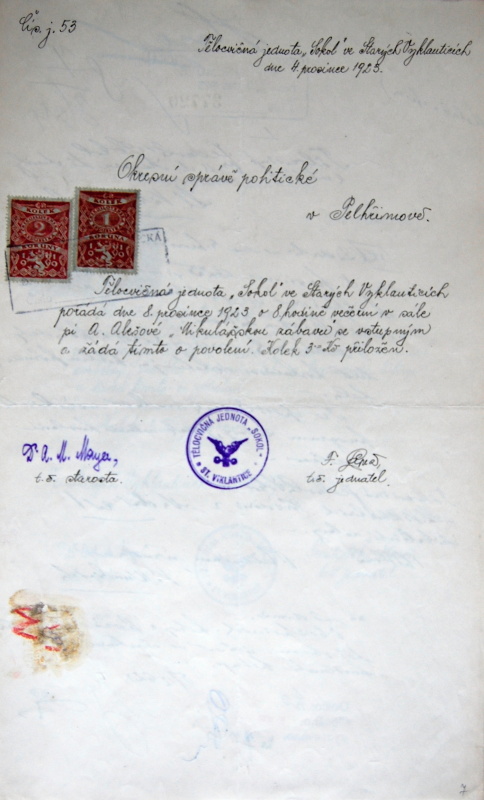 Čís. j. 53
Tělocvičná jednota „Sokol" ve Starých Vyklanticích
dne 4. prosince 1923.
Okresní správě politické
v Pelhřimově.
KOLEK
2
KORUNA
KOLEK
1
KORUNA
Tělocvičná jednota „Sokol" ve Starých Vyklanticích
pořádá dne 8. prosince 1923 o 8 hodině večerní v sále
pí A. Alešové „Mikulášskou zábavu" se vstupným
a žádá tímto o povolení. Kolek 3 Kč přiložen.
TĚLOCVIČNÁ JEDNOTA „SOKOL"
ST. VYKLANTICE
Dr. A. M.
t. č. starosta.
F.
t. č. jednatel.
7